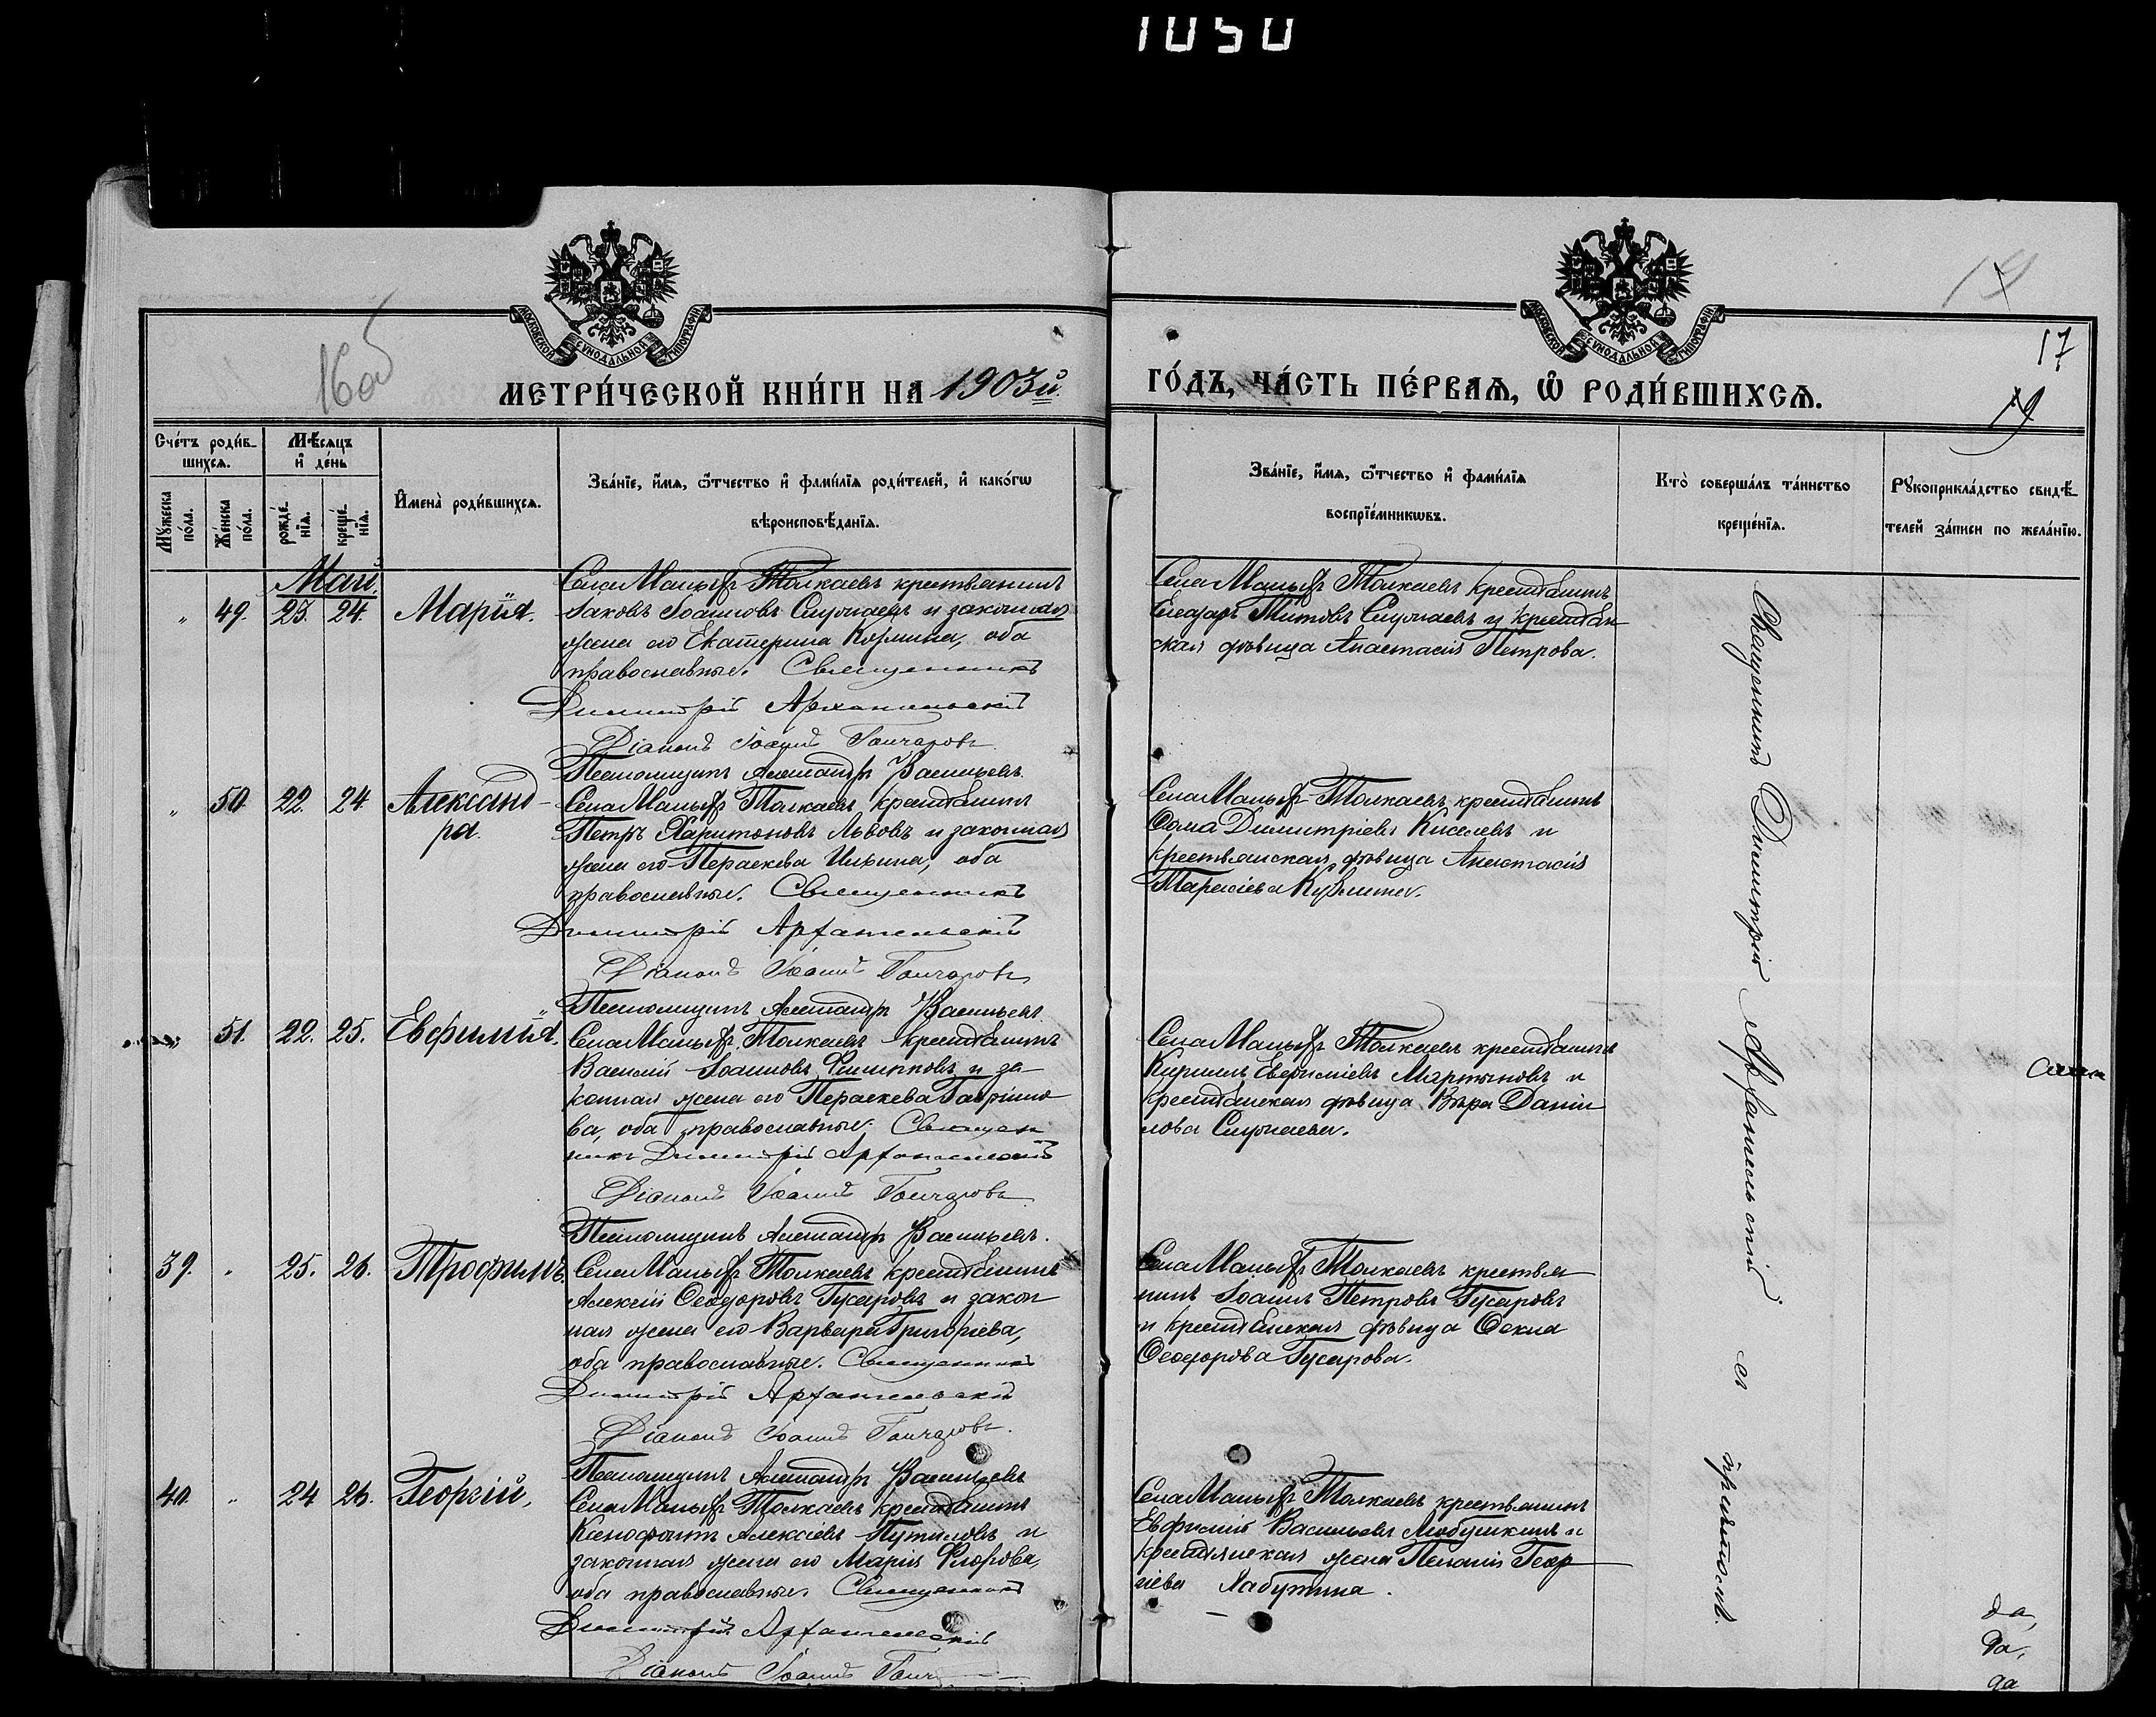 1050
МОСКОВСКОЙ СѴНОДАЛЬНОЙ ТИПОГРАФІИ
МОСКОВСКОЙ СѴНОДАЛЬНОЙ ТИПОГРАФІИ
16об
17
19
МЕТРИ́ЧЕСКОЙ КНИ́ГИ НА 1903й
ГО́ДЪ, ЧА́СТЬ ПЕ́РВАѦ, Ѿ РОДИ́ВШИХСѦ.
Сче́тъ роди́в-
шихсѧ.
Мѣ́сѧцъ
и҆ де́нь
Мꙋжеска по́ла.
Же́нска по́ла.
рожде́-
нїѧ.
креще́-
нїѧ.
И҆мена̀ роди́вшихсѧ.
Зва́нїе, и҆́мѧ, ѻ҆́тчество и҆ фами́лїѧ роди́телей, и҆ како́гѡ
вѣроисповѣ́данїѧ.
Зва́нїе, и҆́мѧ, ѻ҆́тчество и҆ фами́лїѧ
воспрїе́мникѡвъ.
Кто̀ соверша́лъ та́инство
креще́нїѧ.
Рꙋкоприкла́дство свидѣ́-
телей за́писи по жела́нїю.
Май.
49. 23. 24. Марія.
Села Малыхъ Толкаевъ крестьянинъ
Іаковъ Іоанновъ Слугаевъ и законная
жена его Екатерина Козмина, оба
православные. Священникъ
Димитрій Архангельскій
Діаконъ Іоаннъ Гончаровъ
Псаломщикъ Александръ Васильевъ.
Села Малыхъ Толкаевъ крестьянинъ
Елеазаръ Титовъ Слугаевъ и крестьян
ская дѣвица Анастасія Петрова.
50. 22. 24 Александ-
ра.
Села Малыхъ Толкаевъ крестьянинъ
Петръ Харитоновъ Львовъ и законная
жена его Параскева Ильина, оба
православные. Священникъ
Димитрій Архангельскій
Діаконъ Іоаннъ Гончаровъ
Псаломщикъ Александръ Васильевъ.
Села Малыхъ Толкаевъ крестьянинъ
Ѳома Димитріевъ Киселевъ и
крестьянская дѣвица Анастасія
Тарасіева
51. 22. 25. Евфимія.
Села Малыхъ Толкаевъ крестьянинъ
Василій Іоанновъ Филипповъ и за-
конная жена его Параскева Гаврило
ва, оба православные. Священ
никъ Димитрій Архангельскій
Діаконъ Іоаннъ Гончаровъ
Псаломщикъ Александръ Васильевъ.
Села Малыхъ Толкаевъ крестьянинъ
Кириллъ Евфиміевъ Мартыновъ и
крестьянская дѣвица Вѣра Даніи
лова Слугаева.
39. 25. 26. Трофимъ.
Села Малыхъ Толкаевъ крестьянинъ
Алексій Ѳеодоровъ Гусаровъ и закон
ная жена его Варвара Григоріева,
оба православные. Священникъ
Димитрій Архангельскій
Діаконъ Іоаннъ Гончаровъ.
Псаломщикъ Александръ Васильевъ
Села Малыхъ Толкаевъ крестья
нинъ Іоаннъ Петровъ Гусаровъ
и крестьянская дѣвица Ѳекла
Ѳеодорова Гусарова.
40. 24 26. Георгій.
Села Малыхъ Толкаевъ крестьянинъ
Ксенофонтъ Алексіевъ Путиловъ и
законная жена его Марія Флорова,
оба православные. Священникъ
Димитрій Архангельскій
Діаконъ Іоаннъ Гонч
Села Малыхъ Толкаевъ крестьянинъ
Евфимій Васильевъ Любушкинъ и
крестьянская жена Пелагія Геор
гіева Лабутина.
Священникъ Димитрій Архангельскій съ причтомъ.
да,
да,
да